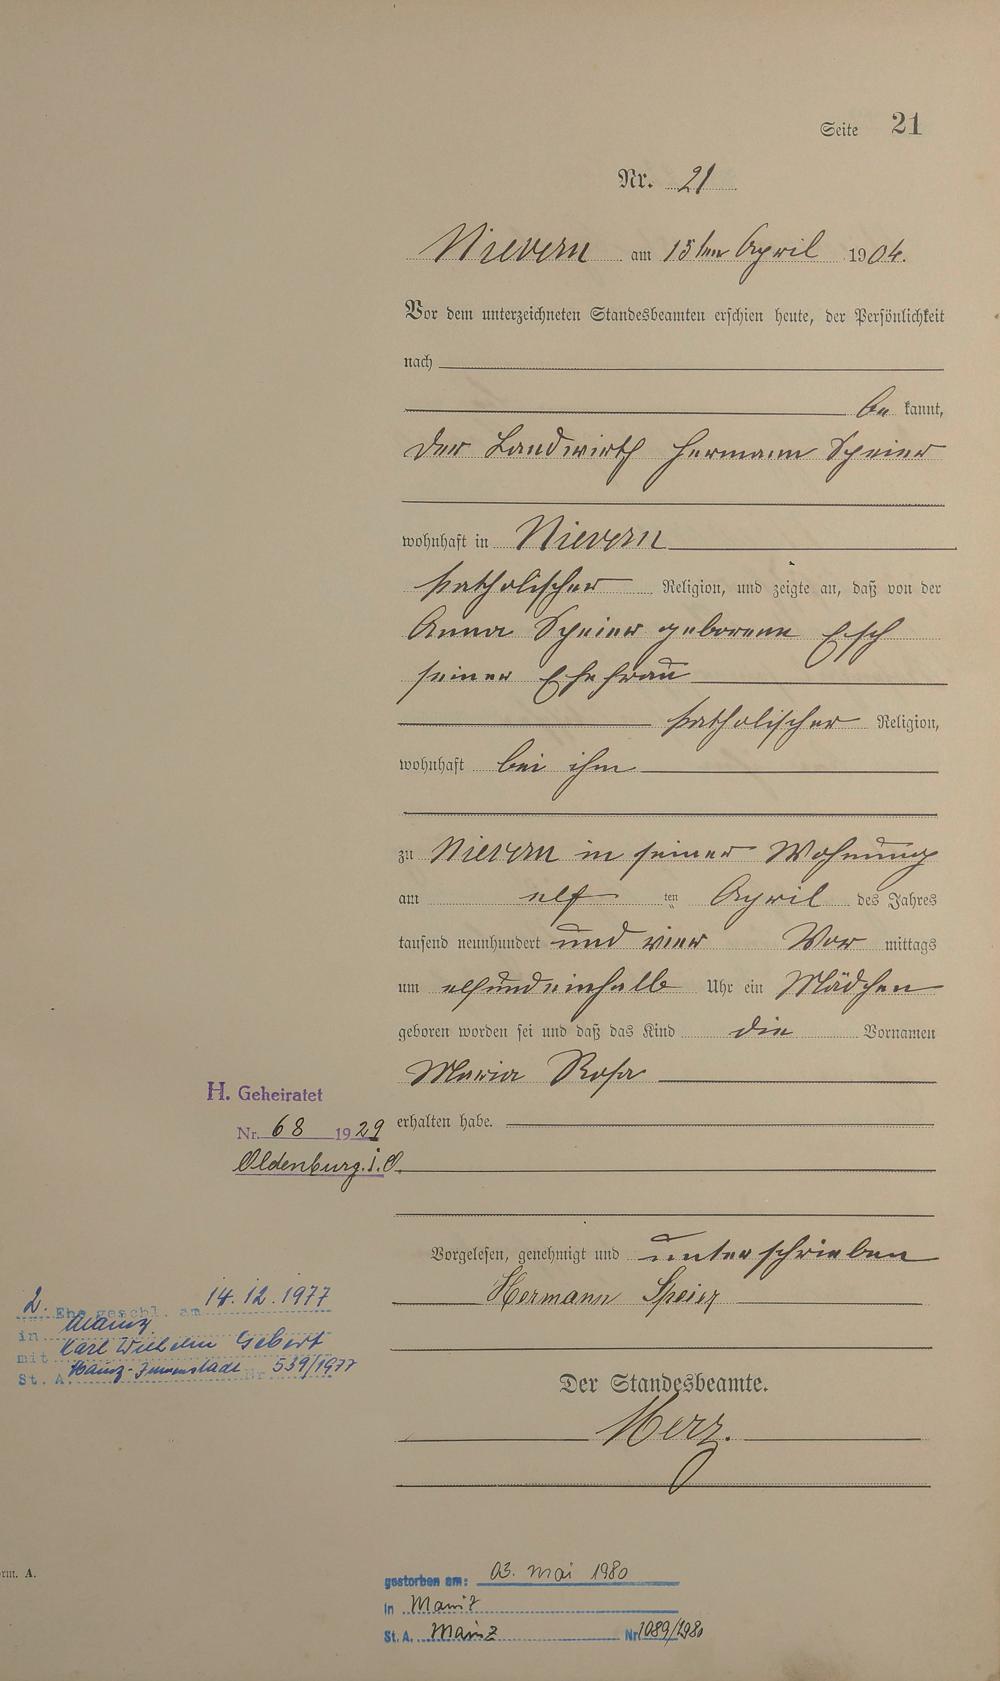 Seite 21
Nr. 21
Nievern am 15ten April 1904.
Vor dem unterzeichneten Standesbeamten erschien heute, der Persönlichkeit
nach
be kannt,
der Landwirth Hermann Speier
wohnhaft in Nievern
katholischer Religion, und zeigte an, daß von der
Anna Speier geborene Esch
seiner Ehefrau
katholischer Religion,
wohnhaft bei ihm
zu Nievern in seiner Wohnung
am elf ten April des Jahres
tausend neunhundert und vier Vor mittags
um elfundeinhalb Uhr ein Mädchen
geboren worden sei und daß das Kind die Vornamen
Maria Rosa
erhalten habe.
H. Geheiratet
Nr. 68 1929
Oldenburg i. O.
Vorgelesen, genehmigt und unterschrieben
Hermann Speier
2. Ehe geschl. am 14.12.1977
in Mainz
mit Karl Wilhelm Gebert
St. A. Mainz-Innenstadt Nr. 539/1977
Der Standesbeamte.
Merz.
rm. A.
gestorben am: 03. Mai 1980
in Mainz
St. A. Mainz Nr. 1089/1980